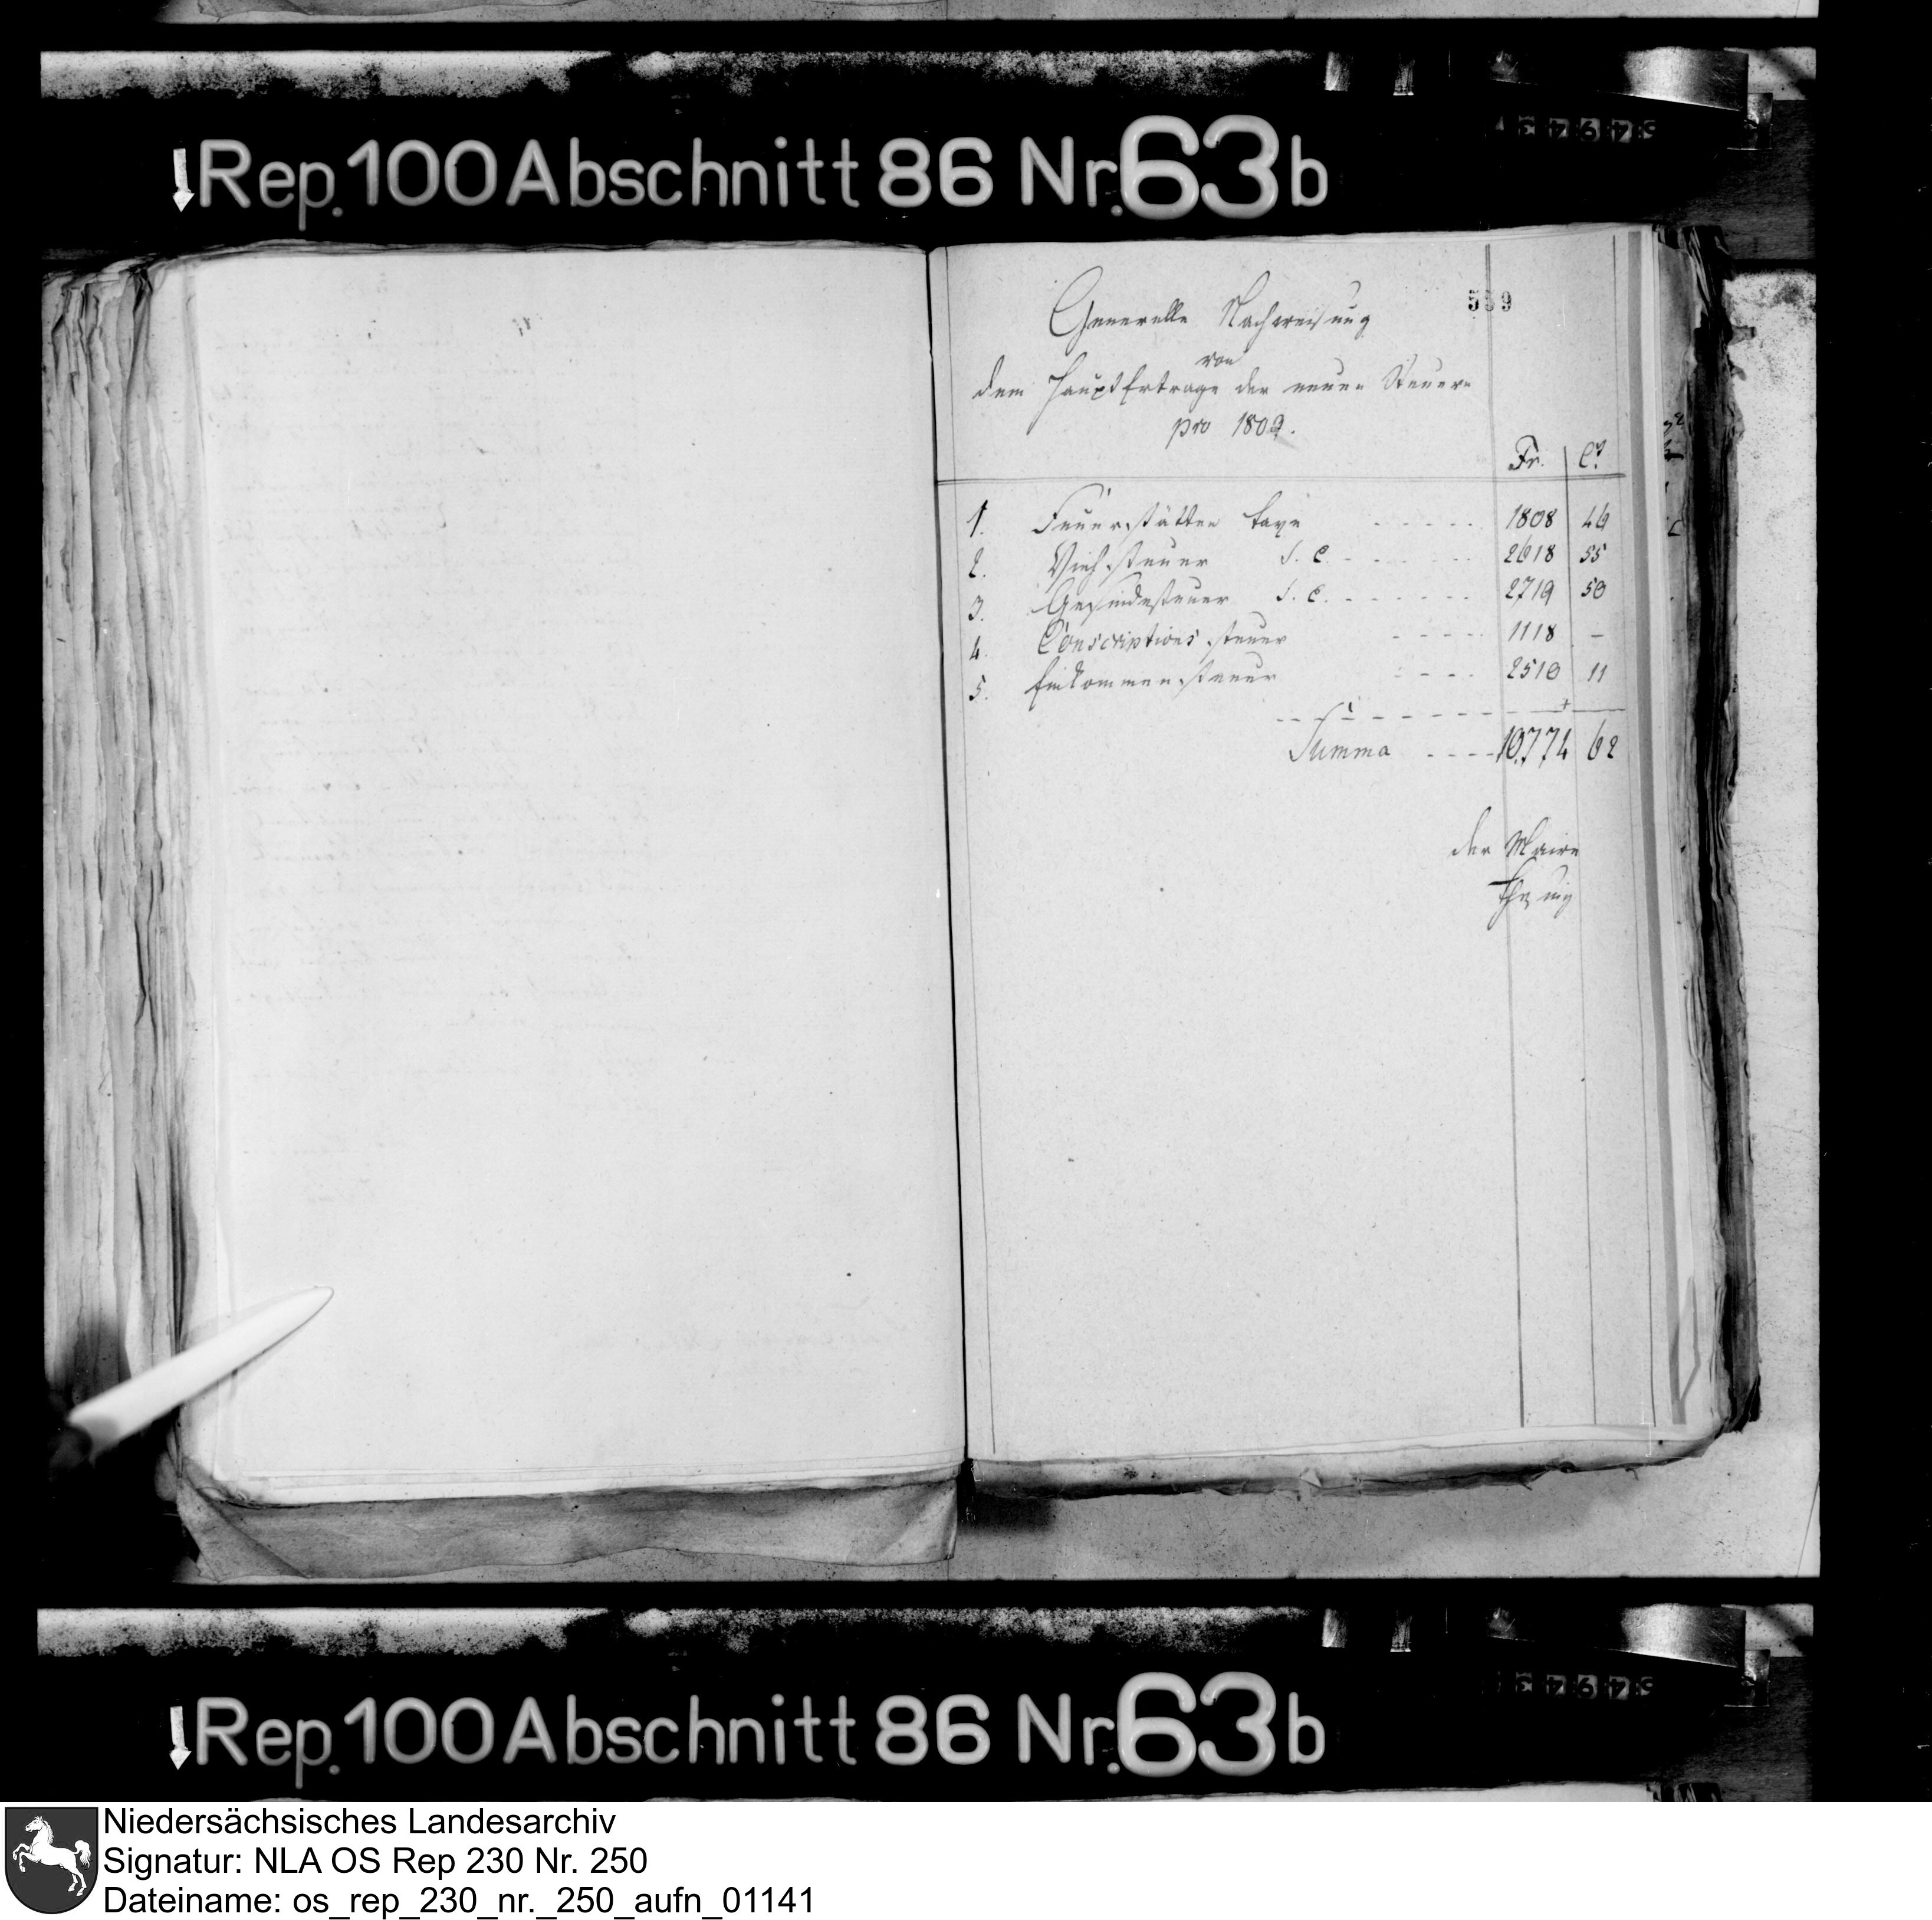 Rep. 100 Abschnitt 86 Nr. 63b
Generelle Nachweisung
von
dem HauptErtrage der neuen Steuern
pro 1809.
Fr. Ct
1. Feuerstätten taxe - - - - - 1808 46
2. Viehsteuer S. C. - - - - - 2618 55
3. Gesindesteuer S. C. - - - - - - 2719 50
4. Conscriptionssteuer - - - - 1118 -
5. Einkommensteuer - - - - 2510 11
Summa - - - - 10,774 62
der Maire
Rep. 100 Abschnitt 86 Nr. 63b
Niedersächsisches Landesarchiv
Signatur: NLA OS Rep 230 Nr. 250
Dateiname: os_rep_230_nr._250_aufn_01141